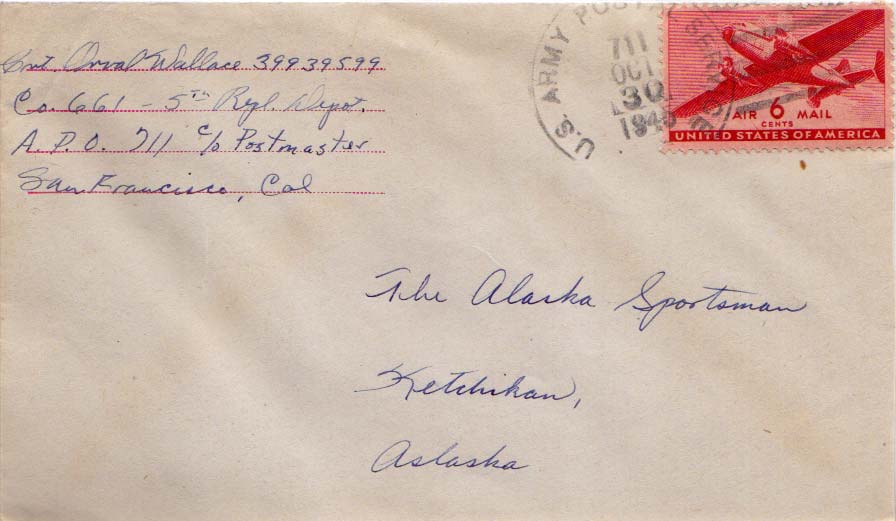 Pvt. Orval Wallace 39939599
Co. 661 - 5th Repl. Depot.
A. P. O. 711 c/o Postmaster
San Francisco, Cal
U.S. ARMY POSTAL SERVICE
711
OCT
30
1945
AIR 6 MAIL
CENTS
UNITED STATES OF AMERICA
The Alaska Sportsman
Ketchikan,
Aslaska